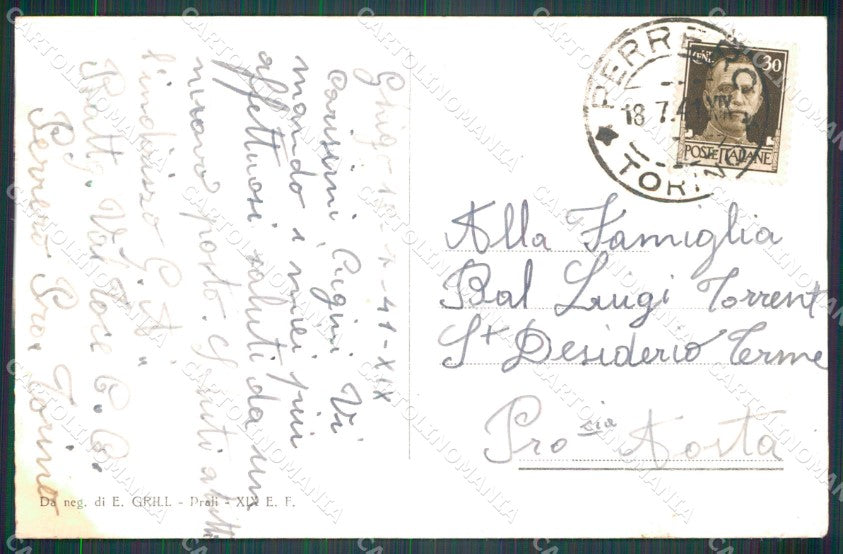 Ghigo 18-7-41-XIX
Carissimi Cugini Vi
mando i miei più
affettuosi saluti da un
nuovo posto. Saluti a tutti
l'indirizzo
Batt. C. C.
Perrero Pro. Torino
Da neg. di E. GRILL - Prali - XIX E. F.
PERRERO
18.7.41 XIX
TORINO
CENT. 30
POSTE ITALIANE
Alla Famiglia
Bal Luigi Torrent
St Desiderio Terme
Pro cia Aosta
CARTOLINOMANIA